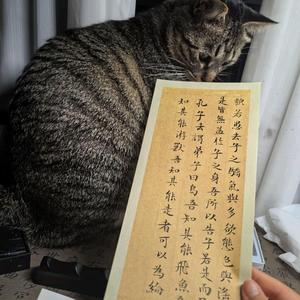 貌若愚去子之驕氣與多欲態色與淫
是皆無益於子之身吾所以告子若是而
孔子去謂弟子曰鳥吾知其能飛魚
知其能游獸吾知其能走者可以為綸